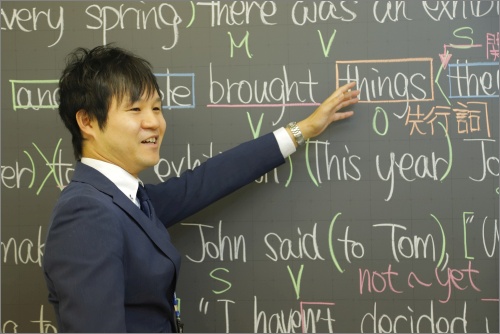 every spring) there was an exhibi
M V S 関
and brought things the
V O 先行詞
er) (to exhibition) (This year) Jo
mak John said (to Tom), ["W
S V not ~ yet
a to "I haven't decided